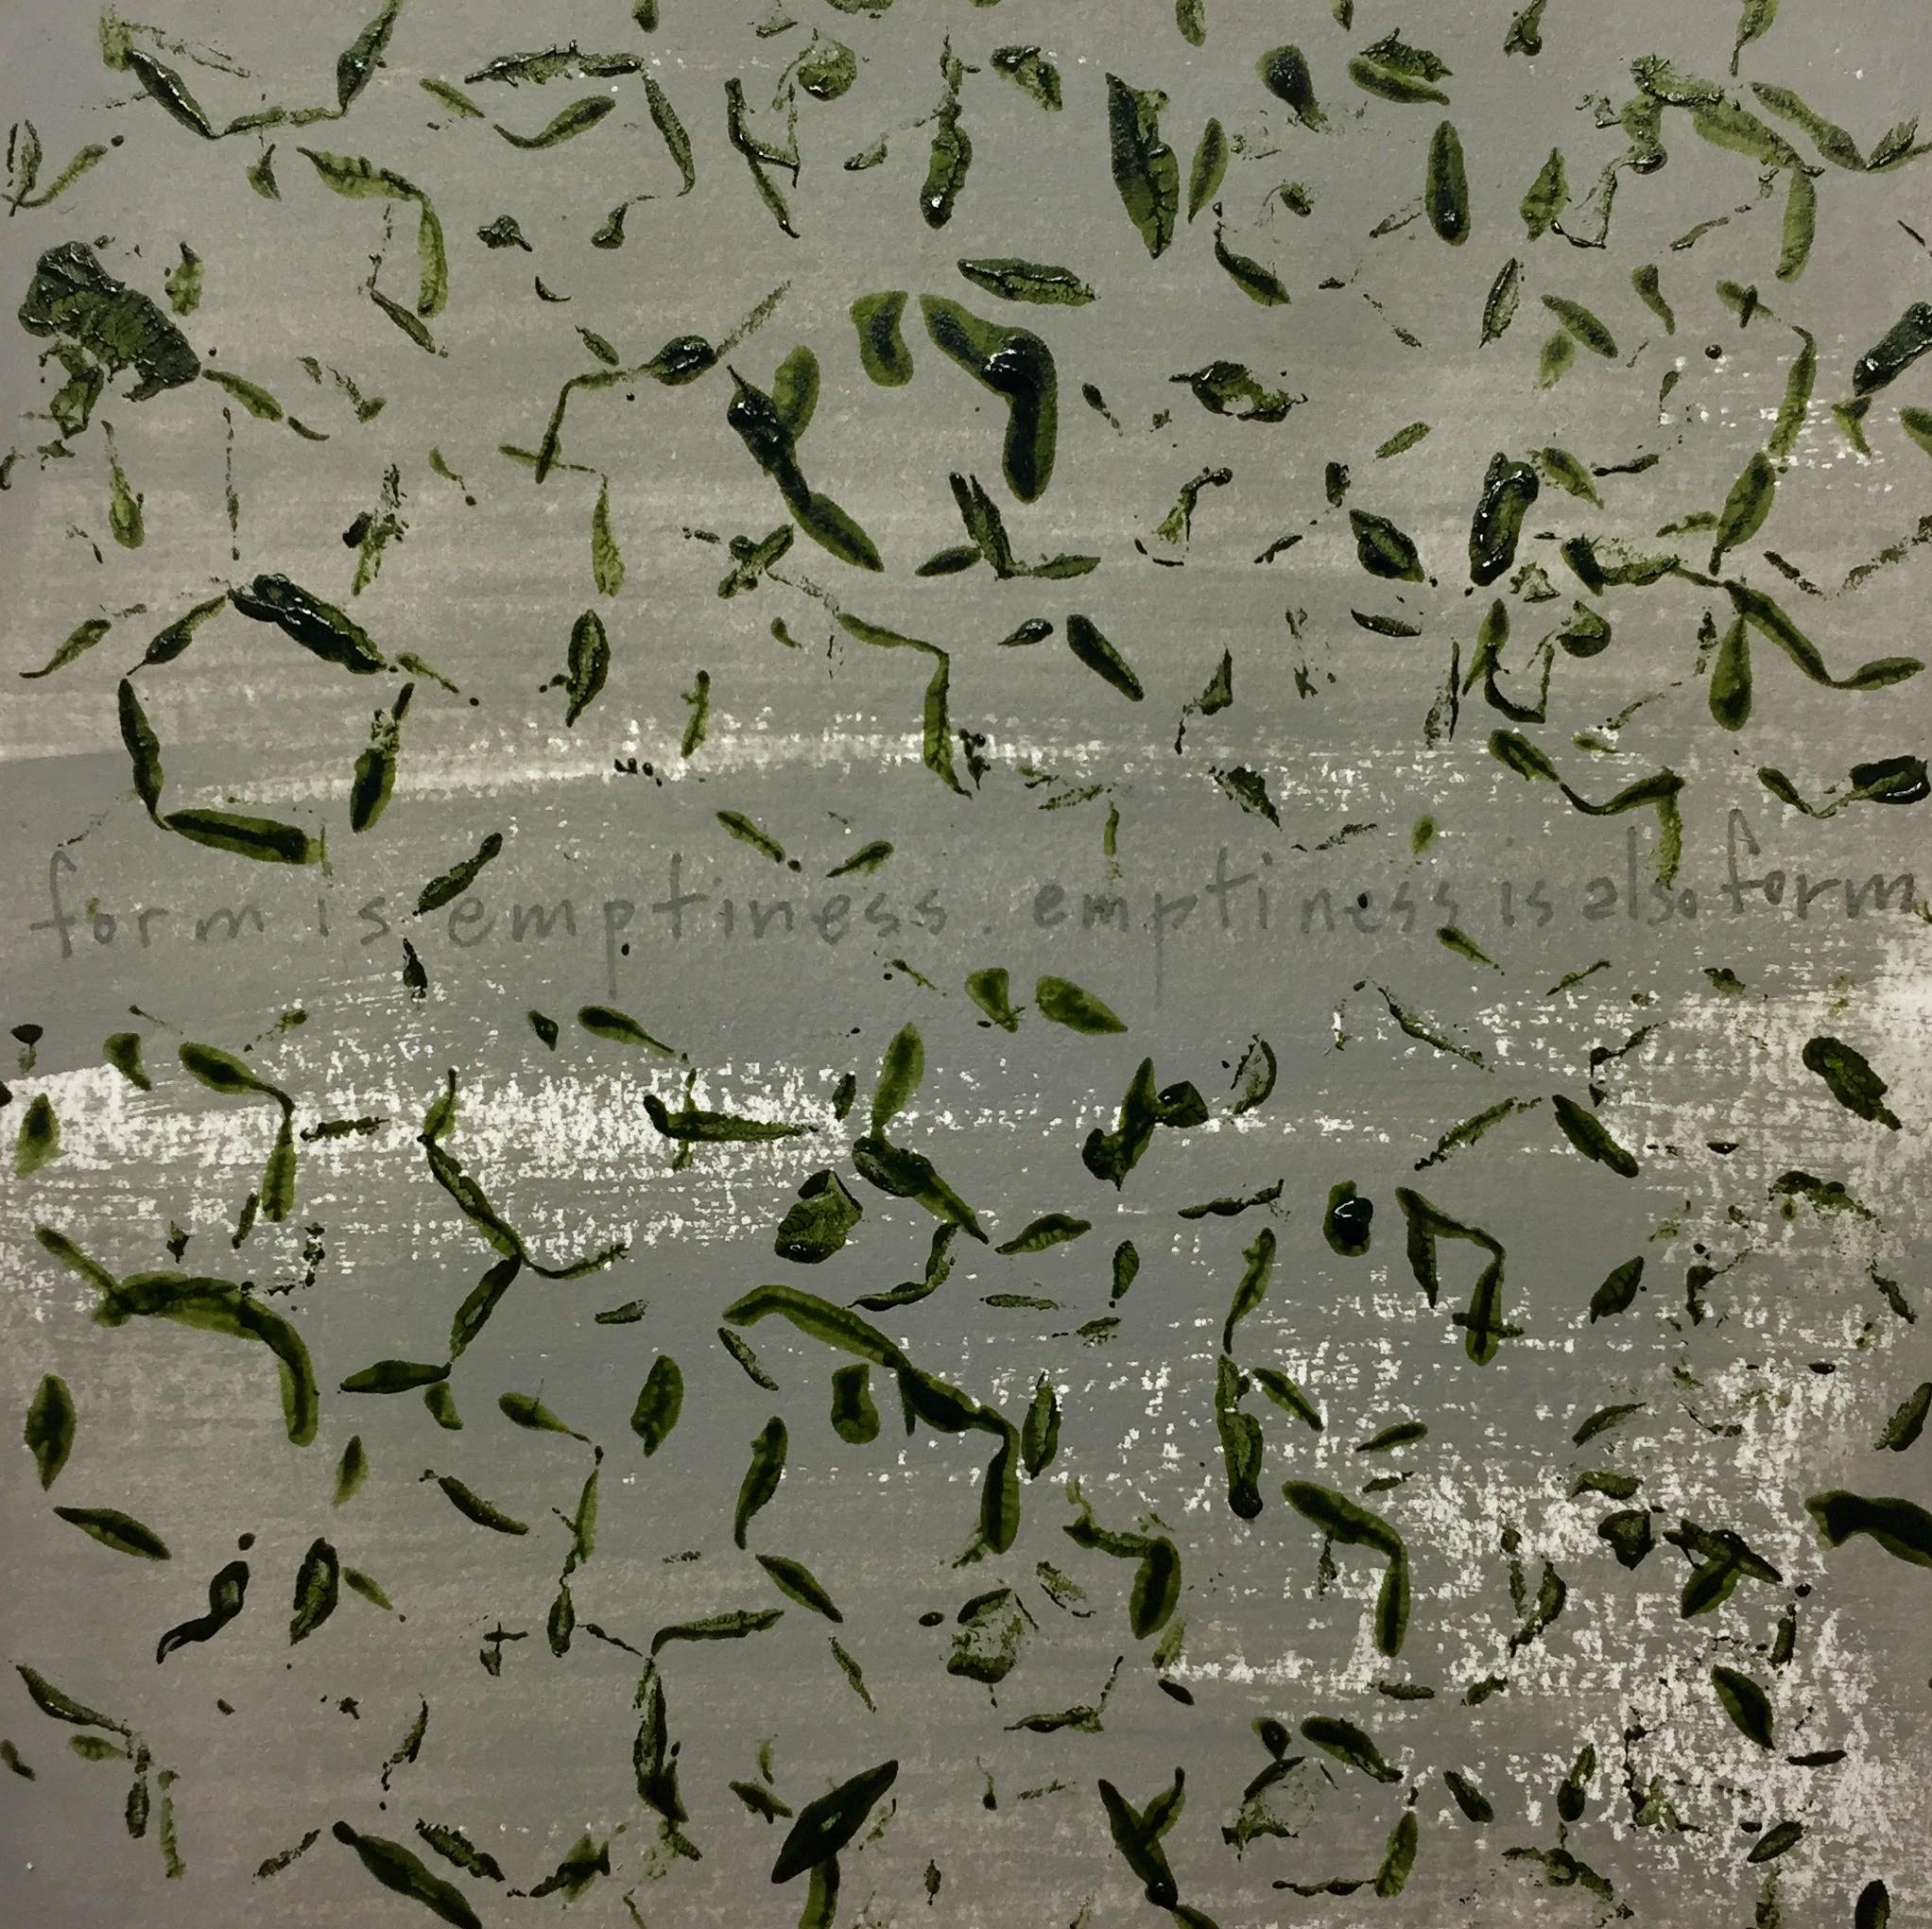 form is emptiness. emptiness is also form